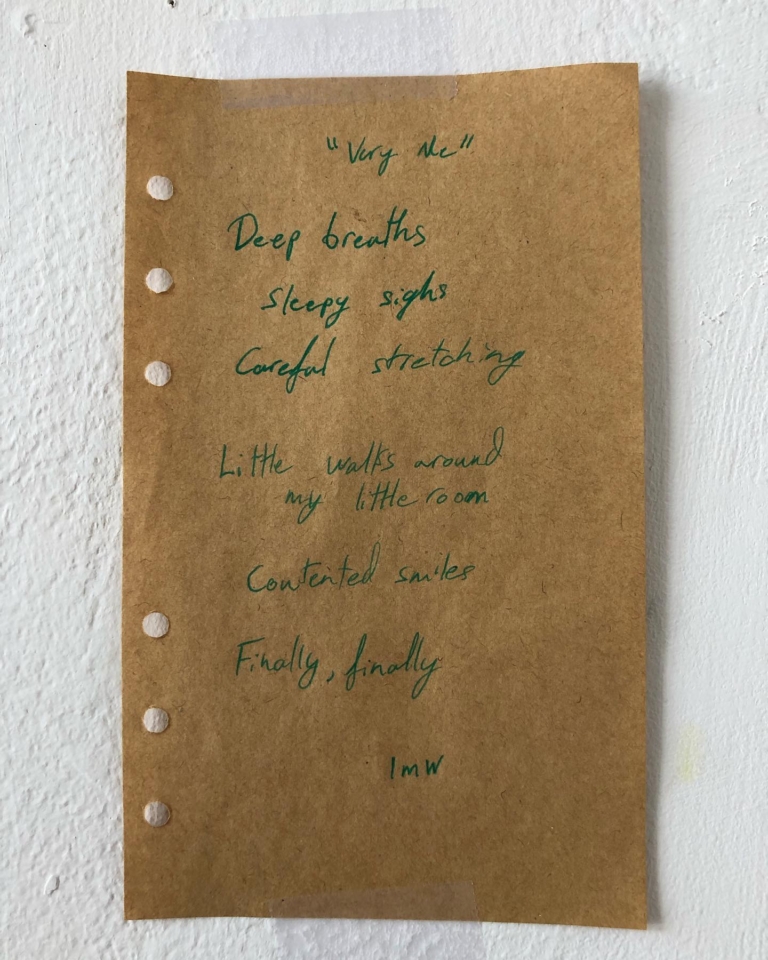 "Very Me"
Deep breaths
Sleepy sighs
Careful stretching
Little walks around
my little room
Contented smiles
Finally, finally
lmw